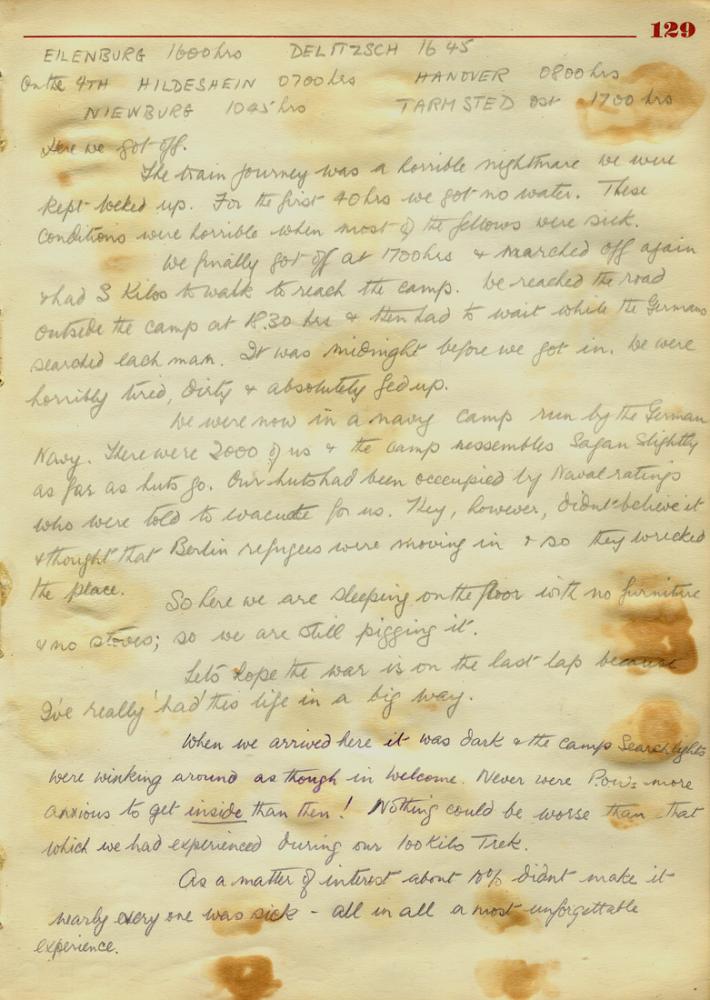 129
EILENBURG 1600 hrs DELITZSCH 16 45
On the 4TH HILDESHEIN 0700 hrs HANOVER 0800 hrs
NIEWBURG 1045 hrs TARMSTED OST 1700 hrs
Here we got off.
The train journey was a horrible nightmare we were
kept locked up. For the first 40 hrs we got no water. These
conditions were horrible when most of the fellows were sick.
We finally got off at 1700 hrs & marched off again
& had 3 Kilos to walk to reach the camp. We reached the road
outside the camp at 18.30 hrs & then had to wait while the Germans
searched each man. It was midnight before we got in. We were
horribly tired, dirty & absolutely fed up.
We were now in a navy camp run by the German
Navy. There were 2000 of us & the camp ressembles Sagan slightly
as far as huts go. Our huts had been occupied by Naval ratings
who were told to evacuate for us. They, however, didnt believe it
& thought that Berlin refugees were moving in & so they wrecked
the place.
So here we are sleeping on the floor with no furniture
& no stoves; so we are still pigging it.
Lets hope the war is on the last lap because
I've really 'had' this life in a big way.
When we arrived here it was dark & the camp Searchlights
were winking around as though in welcome. Never were P.o.w's more
anxious to get inside than then! Nothing could be worse than that
which we had experienced during our 100 Kilo Trek.
As a matter of interest about 10% didnt make it
nearly every one was sick - all in all a most unforgettable
experience.